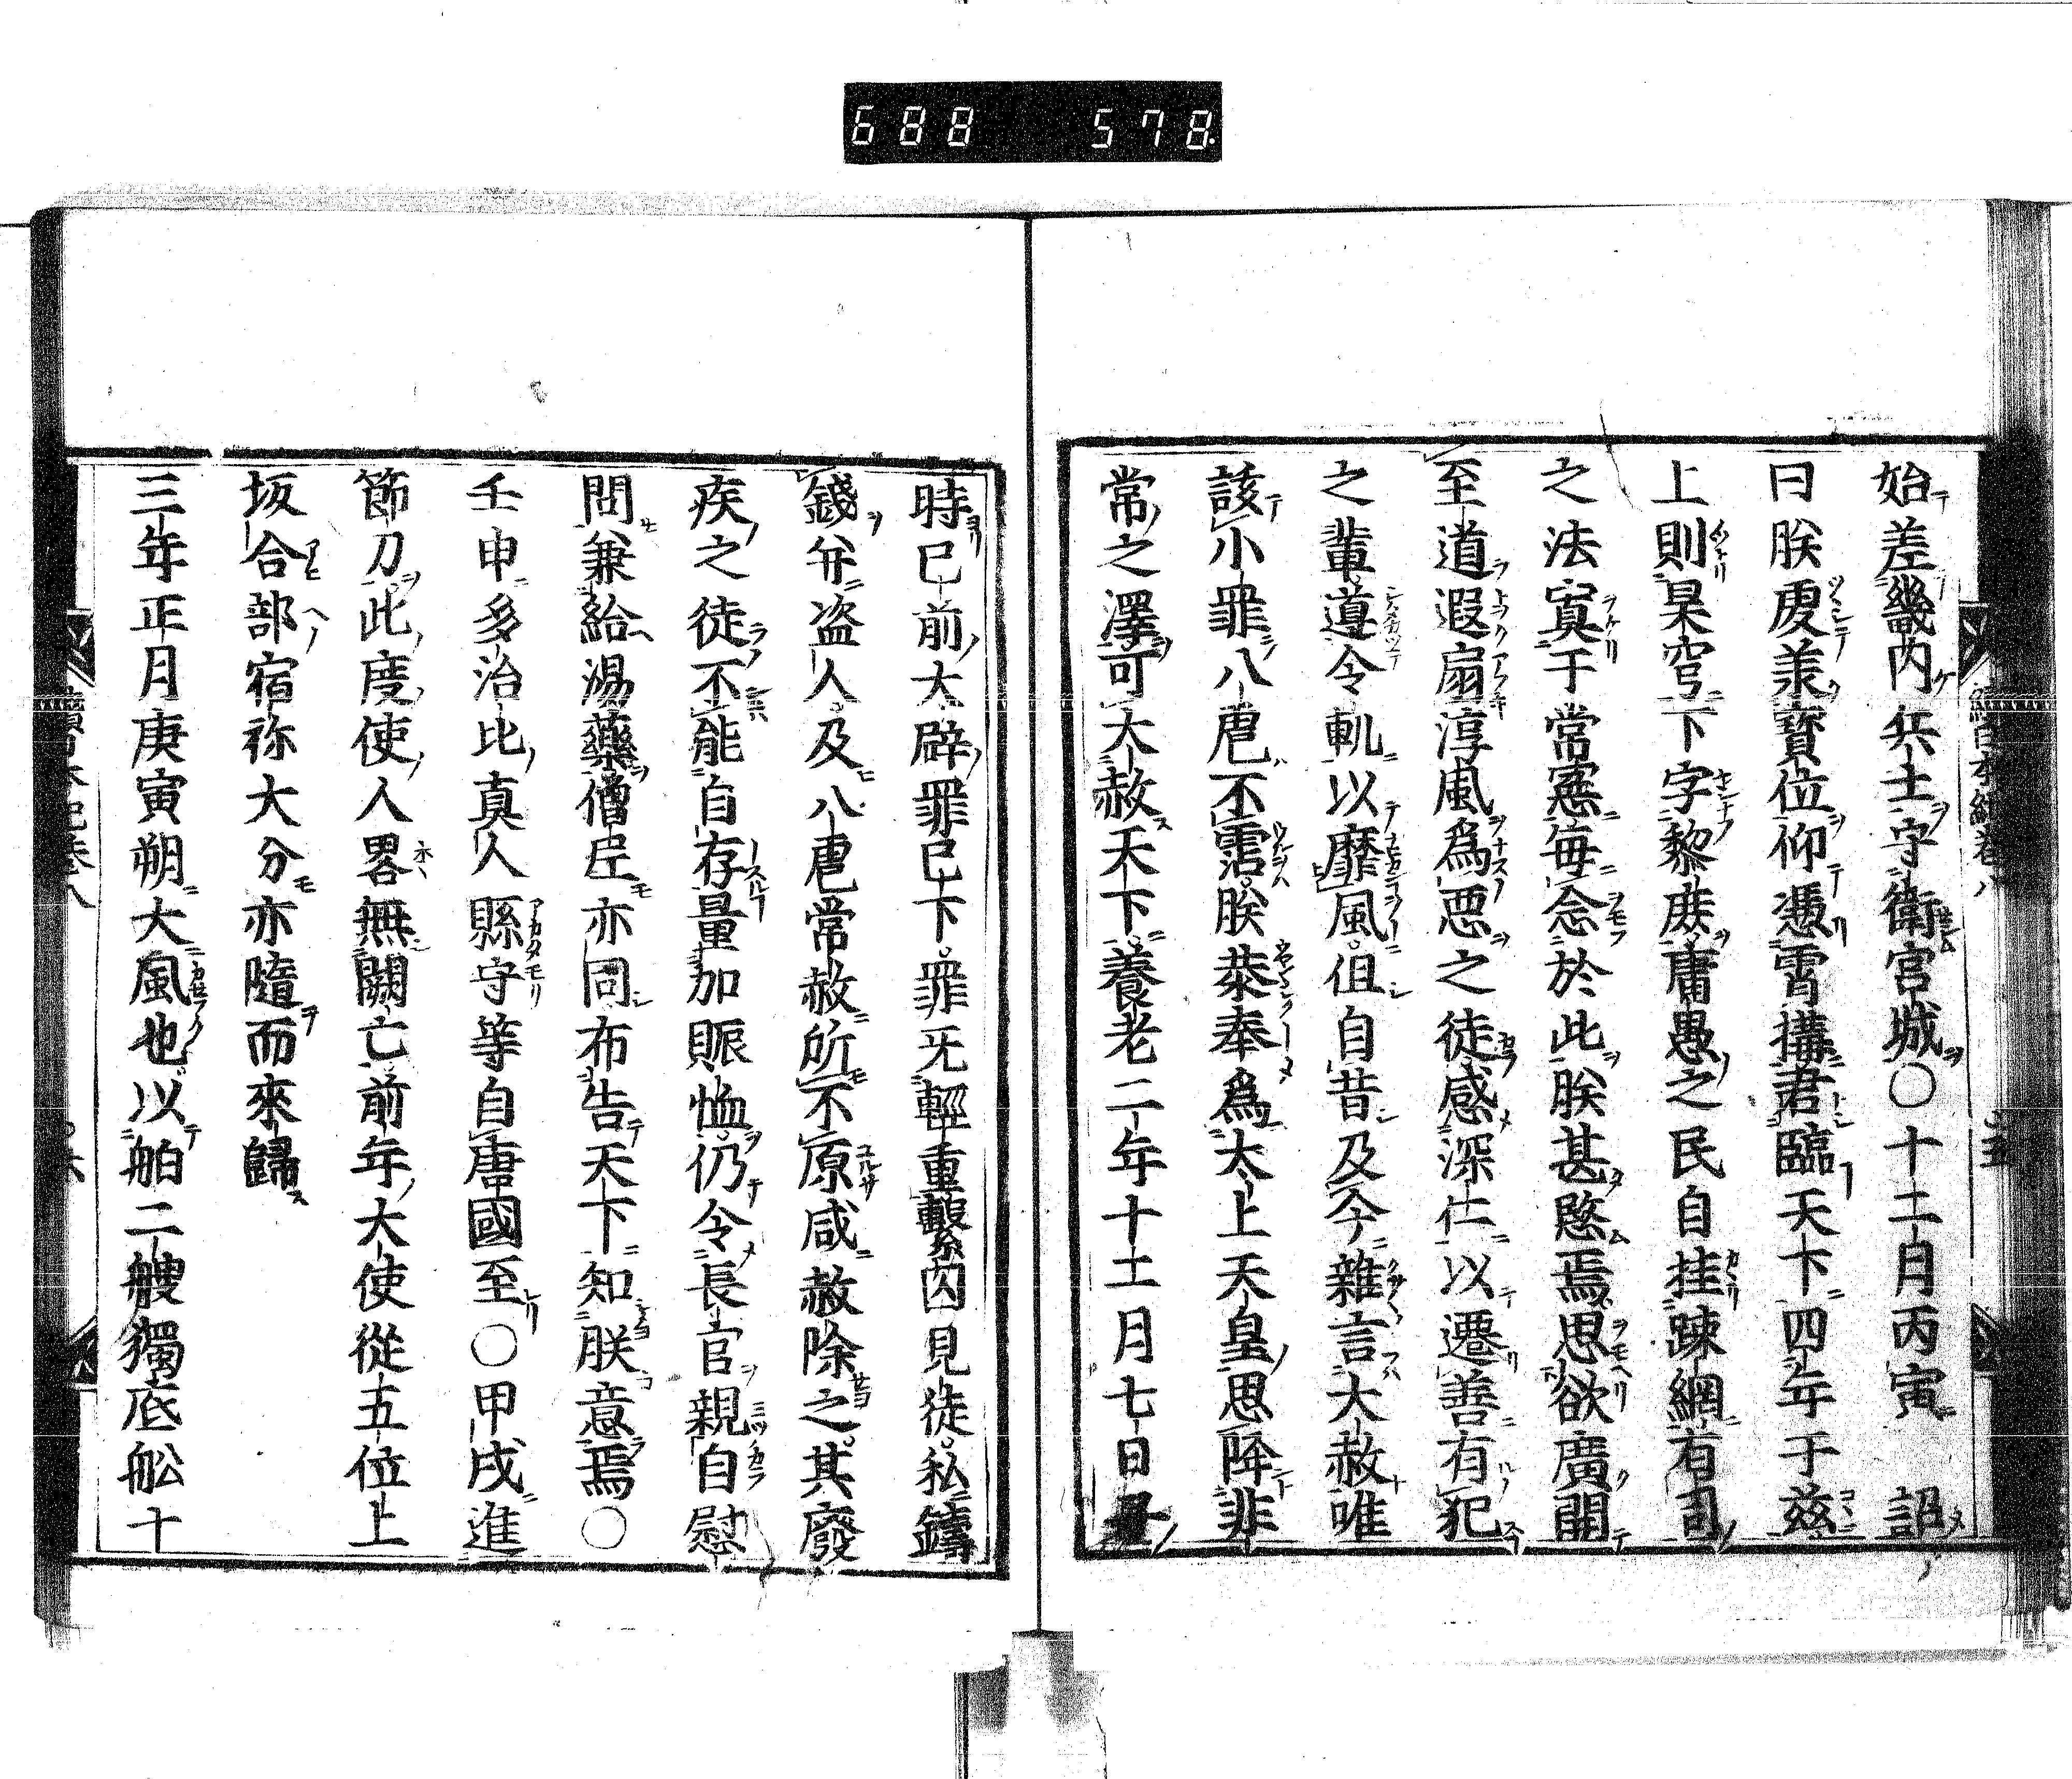 688 578
始差畿内兵士守衛宮城○十二月丙寅 詔
曰朕虔羕寶位仰憑霄構君臨天下四年于兹
上則昊穹下字黎庶庸愚之民自挂踈網有司
之法寘于常憲毎念於此朕甚愍焉思欲廣開
至道遐扇淳風爲悪之徒感深仁以遷善有犯
之輩遵令軌以靡風但自昔及今雜言大赦唯
該小罪八虐不霑朕恭奉爲太上天皇思降非
常之澤可大赦天下養老二年十二月七日
時已前大辟罪已下罪无輕重繫囚見徒私鑄
錢并盗人及八虐常赦所不原咸赦除之其廢
疾之徒不能自存量加賑恤仍令長官親自慰
問兼給湯藥僧尼亦同布告天下知朕意焉○
壬申多治比真人縣守等自唐國至○甲戌進
節刀此度使人畧無闕亡前年大使從五位上
坂合部宿祢大分亦隨而來歸
三年正月庚寅朔大風也以舶二艘獨底舩十